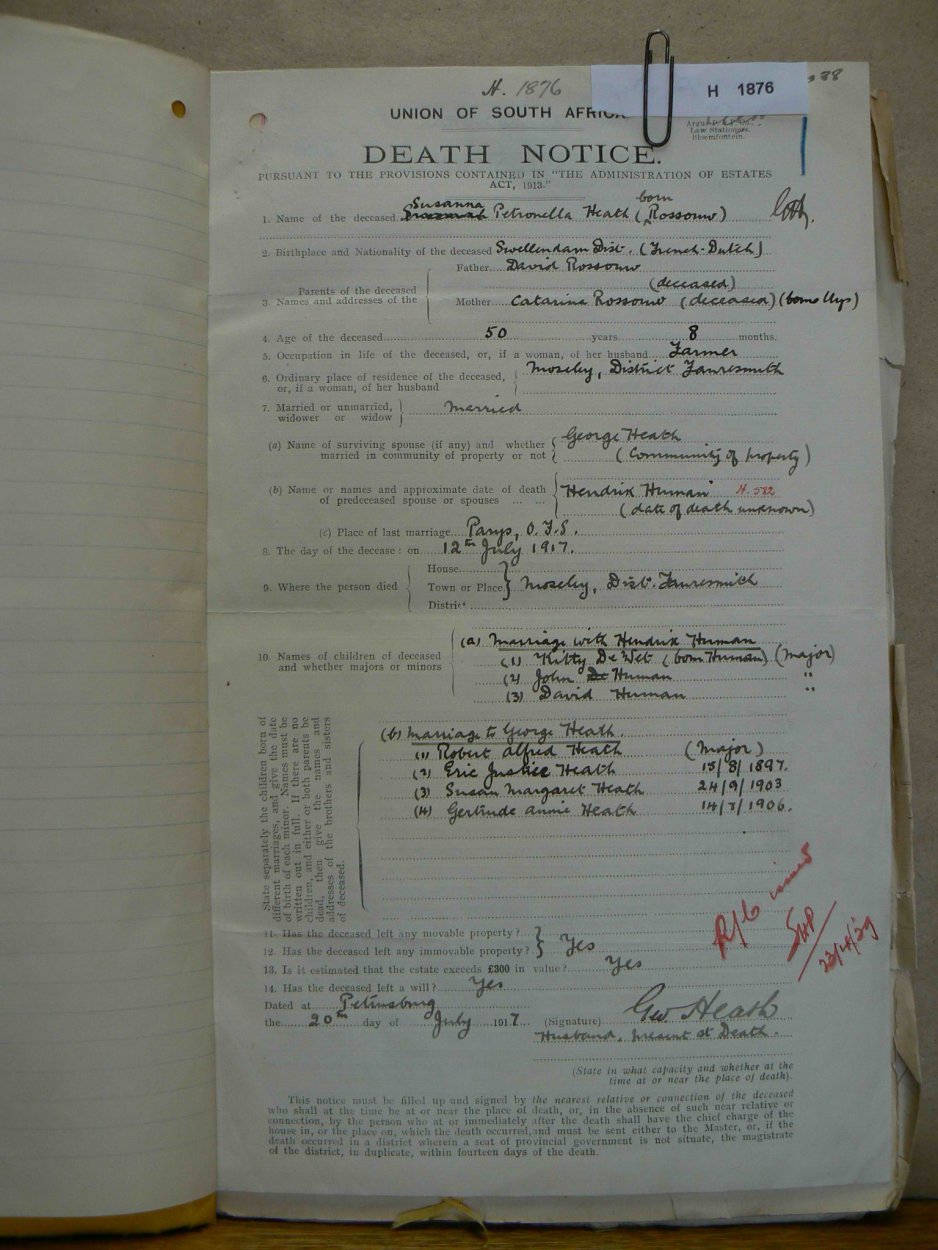 H. 1876
H 1876
88
UNION OF SOUTH AFRICA
Law Stationers,
Bloemfontein.
DEATH NOTICE.
PURSUANT TO THE PROVISIONS CONTAINED IN "THE ADMINISTRATION OF ESTATES
ACT, 1913."
Susanna born
1. Name of the deceased Petronella Heath (Rossouw)
2. Birthplace and Nationality of the deceased Swellendam Dist. (French-Dutch)
Father David Rossouw
(deceased)
Parents of the deceased
3. Names and addresses of the
Mother Catarina Rossouw (deceased) (born Uys)
4. Age of the deceased 50 years 8 months.
5. Occupation in life of the deceased, or, if a woman, of her husband Farmer
6. Ordinary place of residence of the deceased, or, if a woman, of her husband Moseley, District Fauresmith
7. Married or unmarried, widower or widow Married
(a) Name of surviving spouse (if any) and whether George Heath
married in community of property or not (Community of property)
(b) Name or names and approximate date of death Hendrik Human H. 582
of predeceased spouse or spouses ... ... (date of death unknown)
(c) Place of last marriage Parys, O.F.S.
8. The day of the decease: on 12th July 1917.
House
9. Where the person died Town or Place Moseley, Dist. Fauresmith
District
10. Names of children of deceased
and whether majors or minors
(a) Marriage with Hendrik Human
(1) Kitty De Wet (born Human) (Major)
(2) John De Human "
(3) David Human "
State separately the children born of
different marriages, and give the date
of birth of each minor. Names must be
written out in full. If there are no
children, and either or both parents be
dead, then give the names and
addresses of the brothers and sisters
of deceased.
(b) Marriage to George Heath.
(1) Robert Alfred Heath (Major)
(2) Eric Justice Heath 15/8/1897.
(3) Susan Margaret Heath 24/9/1903
(4) Gertrude Annie Heath 14/7/1906.
11. Has the deceased left any movable property?
12. Has the deceased left any immovable property? Yes
13. Is it estimated that the estate exceeds £300 in value? Yes
14. Has the deceased left a will? Yes
issued
Dated at Petrusburg
the 20th day of July 1917
(Signature) Geo Heath
Husband, present at Death.
(State in what capacity and whether at the
time at or near the place of death).
This notice must be filled up and signed by the nearest relative or connection of the deceased
who shall at the time be at or near the place of death, or, in the absence of such near relative or
connection, by the person who at or immediately after the death shall have the chief charge of the
house in, or the place on, which the death occurred, and must be sent either to the Master, or, if the
death occurred in a district wherein a seat of provincial government is not situate, the magistrate
of the district, in duplicate, within fourteen days of the death.